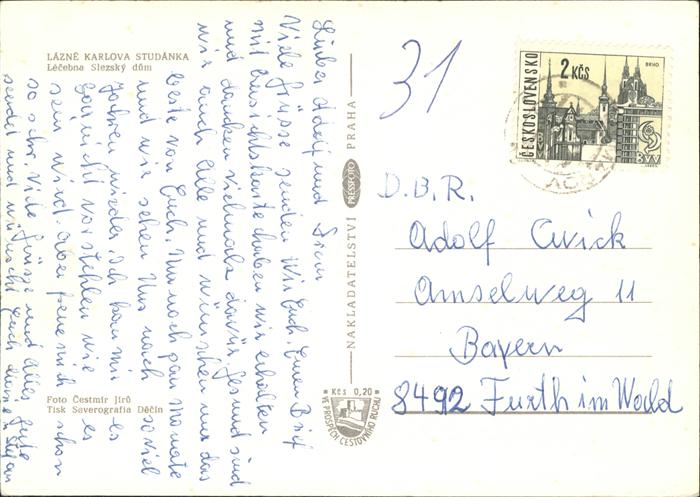 LÁZNĚ KARLOVA STUDÁNKA
Léčebna Slezský dům
Lieber Adolf und Frau
Viele Grüsse senden Wir Euch. Einen Brief
mit Ansichtskarte haben wir erhalten
und danken vielmals dafür. Gesund sind
wir auch Alle und wünschen nur das
beste von Euch. Nur noch paar Monate
und wir sehen Uns nach so viel
Jahren wieder. Ich kann mir es
gar nicht vorstehlen wie es
sein wird. Aber freue mich schon
so sehr. Viele Grüsse und alles gute
sendet und wünscht Euch
Foto Čestmír Jírů
Tisk Severografia Děčín
NAKLADATELSTVÍ PRESSFOTO PRAHA
Kčs 0,20
VE PROSPĚCH CESTOVNÍHO RUCHU
31
ČESKOSLOVENSKO
2 KČS
BRNO
BVV
D.B.R.
Adolf Cwick
Amselweg 11
Bayern
8492 Furth im Wald